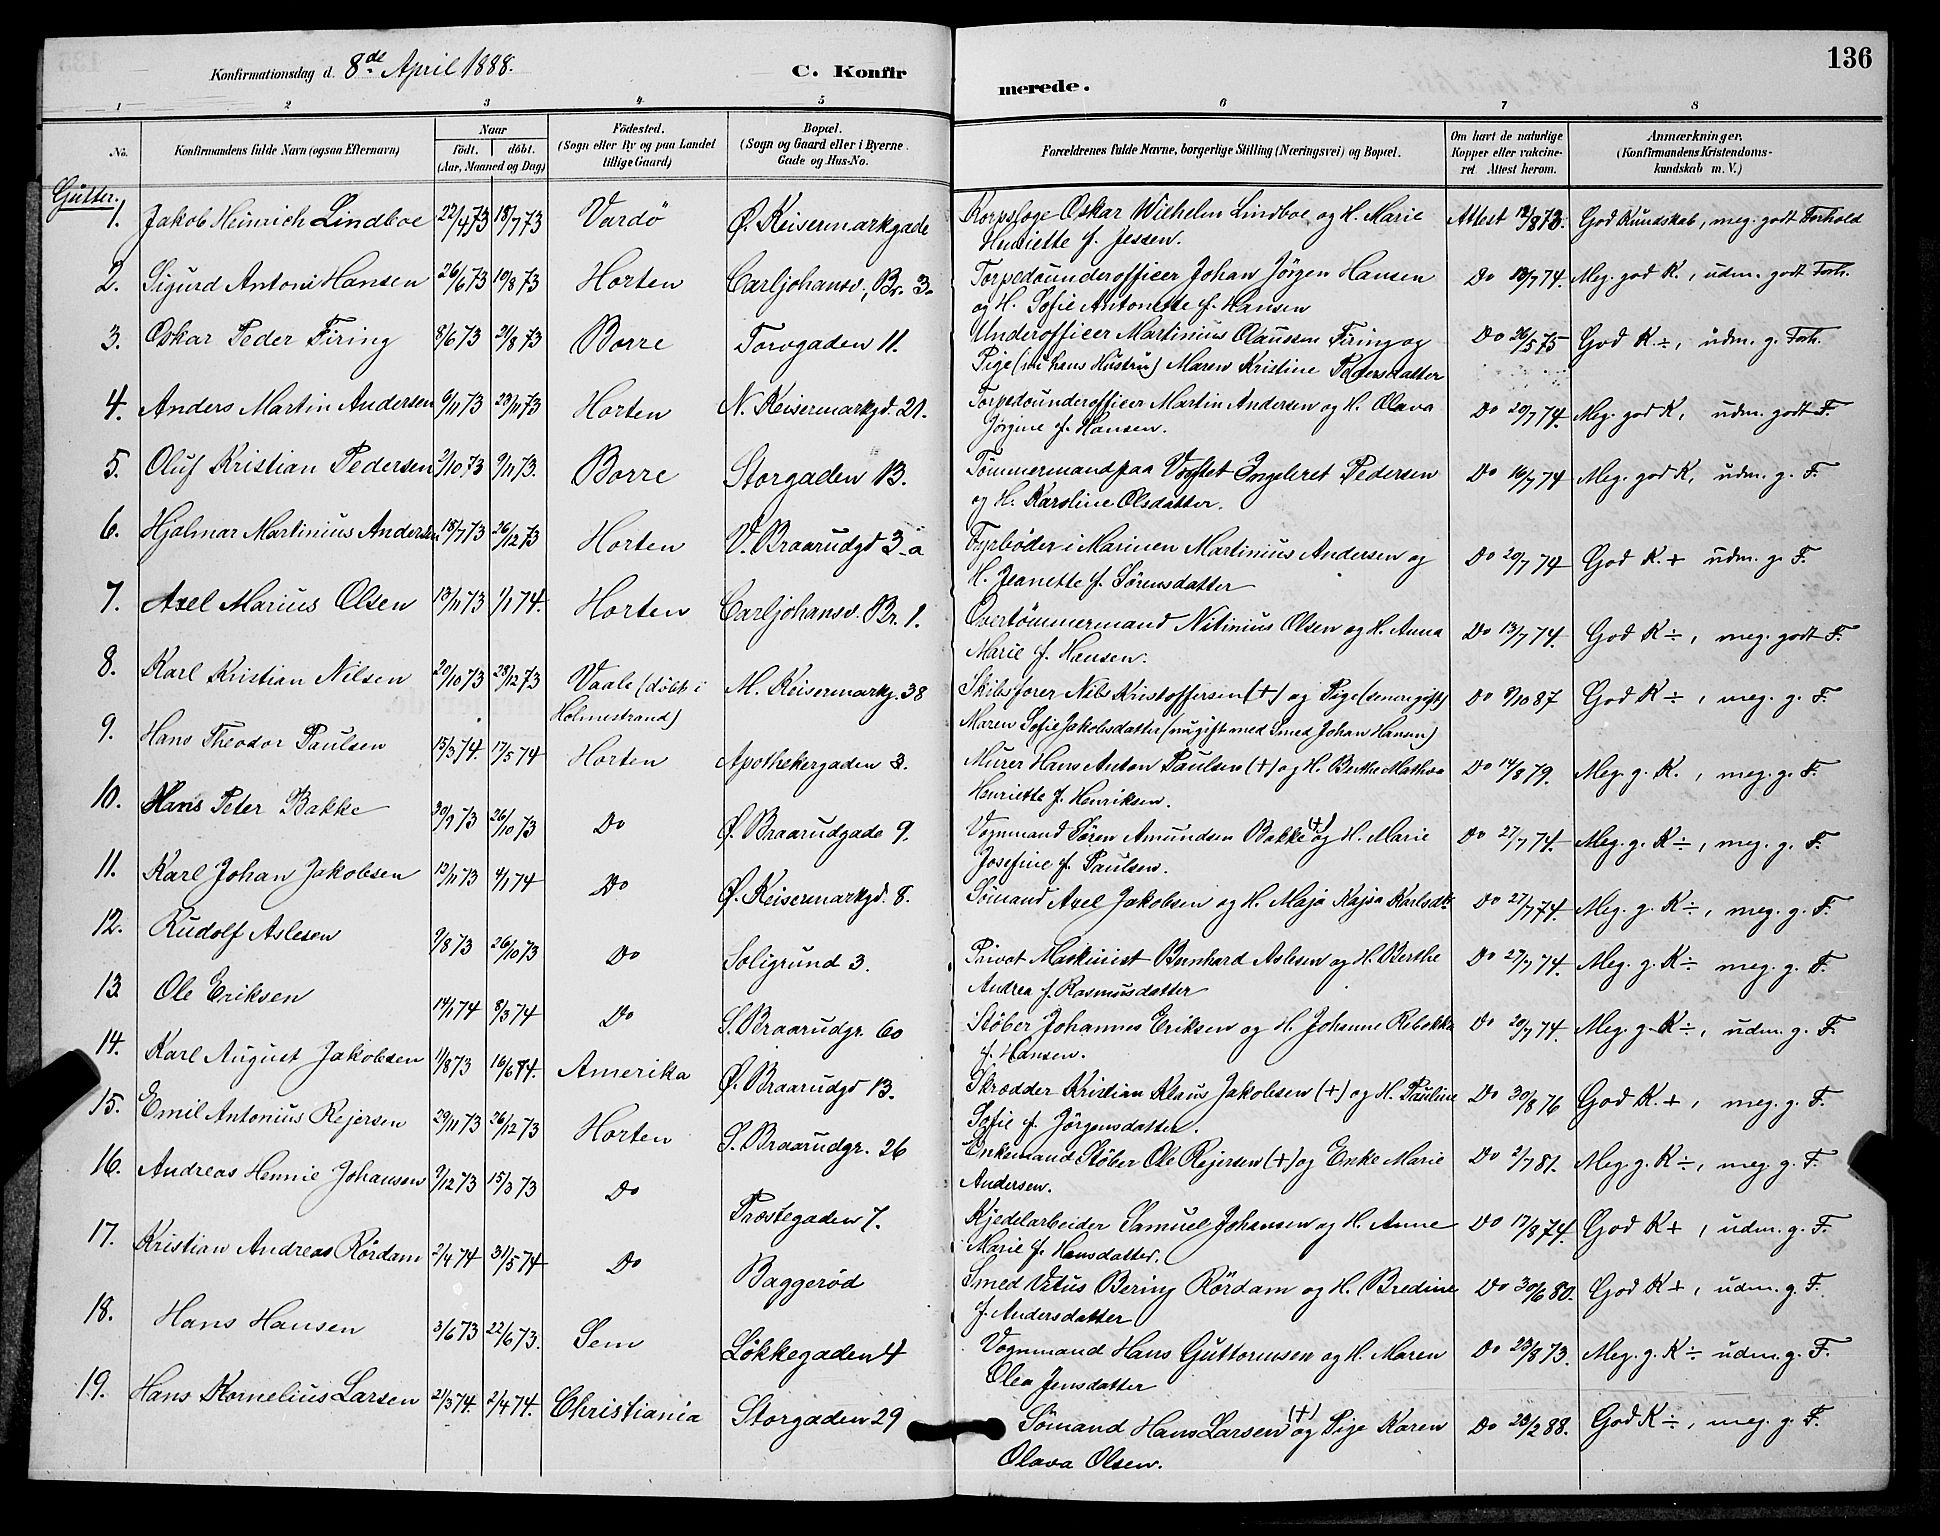 136
Konfirmationsdag d. 8de April 1888.
C. Konfirmerede.
1 2 3 4 5 6 7 8
No.
Konfirmandens fulde Navn (ogsaa Efternavn)
Naar
Födt. döbt.
(Aar, Maaned og Dag)
Födested.
(Sogn eller By og paa Landet tillige Gaard)
Bopæl.
(Sogn og Gaard eller i Byerne Gade og Hus-No.
Forældrenes fulde Navne, borgerlige Stilling (Næringsvei) og Bopæl.
Om havt de naturlige Kopper eller vaccineret. Attest herom.
Anmærkninger.
(Konfirmandens Kristendomskundskab m. V.)
Gutter.
1. Jakob Heinrich Lindboe 22/4 73 18/7 73 Vardö Ø. Keisermarkgade Korpsloge Oskar Wilhelm Lindboe og H. Marie Attest 12/8 73. God Kundskab, meg. godt Forhold
Henriette f. Jessen.
2. Sigurd Antoni Hansen 26/6 73 10/8 73 Horten Carljohansv., Br. 3. Torpedounderofficer Johan Jörgen Hansen Do 13/7 74. Meg. god K., udm. godt Forh.
og H. Sofie Antonette f. Hansen
3. Oskar Peder Firing 8/6 73 21/8 73 Borre Torvgaden 11. Underofficer Martinius Olaussen Firing og Do 26/5 75 God K.÷, udm. g. Forh.
Pige (nu hans Hustru) Maren Kristine Pedersdatter
4. Anders Martin Andersen 9/11 73 23/11 73 Horten N. Keisermarkgd. 21. Torpedounderofficer Martin Andersen og H. Olava Do 20/7 74. Meg. god K, udm. godt F.
Jörgine f. Hansen.
5. Oluf Kristian Pedersen 2/10 73 9/11 73. Borre Storgaden 13. Tömmermand paa Værftet Ingebret Pedersen Do 16/7 74 Meg. god K, udm. g. F.
og H. Karoline Olsdatter.
6. Hjalmar Martinius Andersen 18/7 73 26/12 73 Horten V. Braarudgd 3 a Fyrböder i Marinen Martinius Andersen og Do 20/7 74 God K. + udm. g. F.
H. Jeanette f. Sörensdatter
7. Axel Marius Olsen 13/11 73 1/1 74. Horten Carljohansv. Br. 1. Overtömmermand Nitinius Olsen og H. Anna Do 13/7 74. God K ÷, meg. godt F.
Marie f. Hansen.
8. Karl Kristian Nilsen 20/10 73 28/12 73 Vaale (döbt i M. Keisermarkg. 38 Skibsförer Nils Kristoffersen (+) og Pige (senere gift) Do 9/10 87 God K ÷, meg. g. F.
Holmestrand) Maren Sofie Jakobsdatter (nu gift med Smed Johan Hansen)
9. Hans Theodor Paulsen 15/3 74. 17/5 74 Horten Apothekergaden 3. Murer Hans Anton Paulsen (+) og H. Berthe Mathea Do 14/8 79. Meg. g. K., meg. g. F.
Henriette f. Henriksen.
10. Hans Peter Bakke 30/9 73 26/10 73 Do Ø. Braarudgade 9. Vognmand Sören Amundsen Bakke (+) og H. Marie Do 27/7 74. Meg. g. K ÷, meg. g. F.
Josefine f. Paulsen.
11. Karl Johan Jakobsen 13/11 73 4/1 74 Do Ø. Keisermarkgd. 8. Sömand Axel Jakobsen og H. Maja Kajsa Karlsdt. Do 27/7 74. Meg. g. K ÷, meg. g. F.
12. Rudolf Aslesen 9/8 73 26/10 73 Do Soligrund 3. Privat Maskinist Bernhard Aslesen og H. Berthe Do 27/7 74. Meg. g. K ÷ meg. g. F.
Andrea f. Rasmusdatter
13 Ole Eriksen 14/1 74 8/3 74 Do S. Braarudgr. 60 Stöber Johannes Eriksen og H. Johanne Rebekka Do 20/7 74. Meg. g. K ÷, udm. g. F.
f. Hansen.
14. Karl August Jakobsen 11/8 73 16/6 74. Amerika Ø. Braarudgd 13. Skrædder Kristian Klaus Jakobsen (+) og H. Pauline Do 30/8 76 God K. +, meg. g. F.
Sofie f. Jörgensdatter.
15. Emil Antonius Rejersen 29/11 73 26/12 73 Horten S. Braarudgr. 26 Enkemand Stöber Ole Rejersen (+) og Enke Marie Do 2/7 81. Meg. g. K ÷, meg. g. F.
Andersen.
16. Andreas Hennie Johansen 9/12 73 15/3 73 Do Præstegaden 7. Kjedelarbeider Samuel Johansen og H. Anne Do 17/8 74. God K +, udm. g. F.
Marie f. Hansdatter.
17. Kristian Andreas Rördam 2/4 74 31/5 74 Do Baggeröd Smed Vitus Bering Rördam og H. Bredine Do 30/6 80. God K +, udm. g. F.
f. Andersdatter
18. Hans Hansen 3/6 73 22/6 73. Sem Lökkegaden 4 Vognmand Hans Guttormsen og H. Maren Do 23/8 73. Meg. g. K ÷ udm. g. F.
Olea Jensdatter
19. Hans Kornelius Larsen 21/3 74. 2/4 74. Christiania Storgaden 29 Sömand Hans Larsen (+) og Pige Karen Do 28/2 88. God K ÷, meg. g. F.
Olava Olsen.